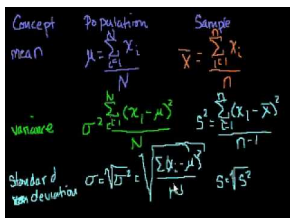 Concept Population Sample
mean μ = N∑i=1 xi / N x̄ = n∑i=1 xi / n
variance σ² = N∑i=1 (xi - μ)² / N S² = n∑i=1 (xi - x̄)² / n-1
Standard deviation σ = √σ² = √∑(xi - μ)² / N S = √S²